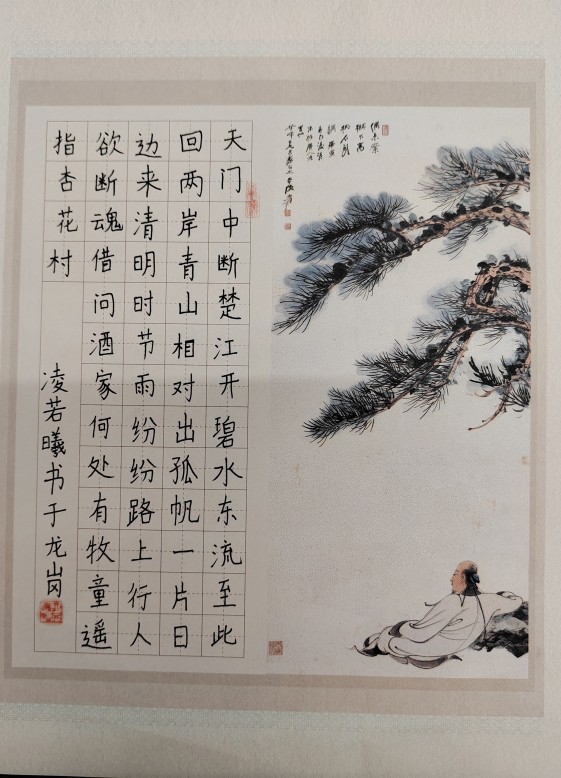 天门中断楚江开碧水东流至此
回两岸青山相对出孤帆一片日
边来清明时节雨纷纷路上行人
欲断魂借问酒家何处有牧童遥
指杏花村
凌若曦书于龙岗